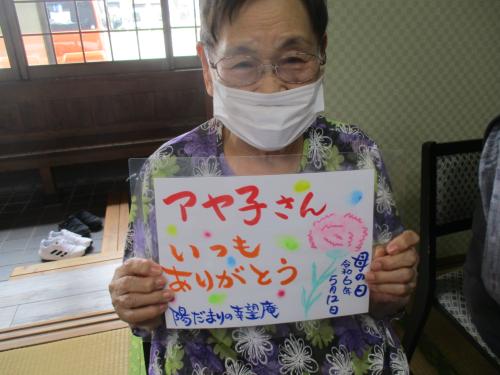 アヤ子さん
いつも
ありがとう
母の日
令和6年
5月12日
陽だまりの幸望庵